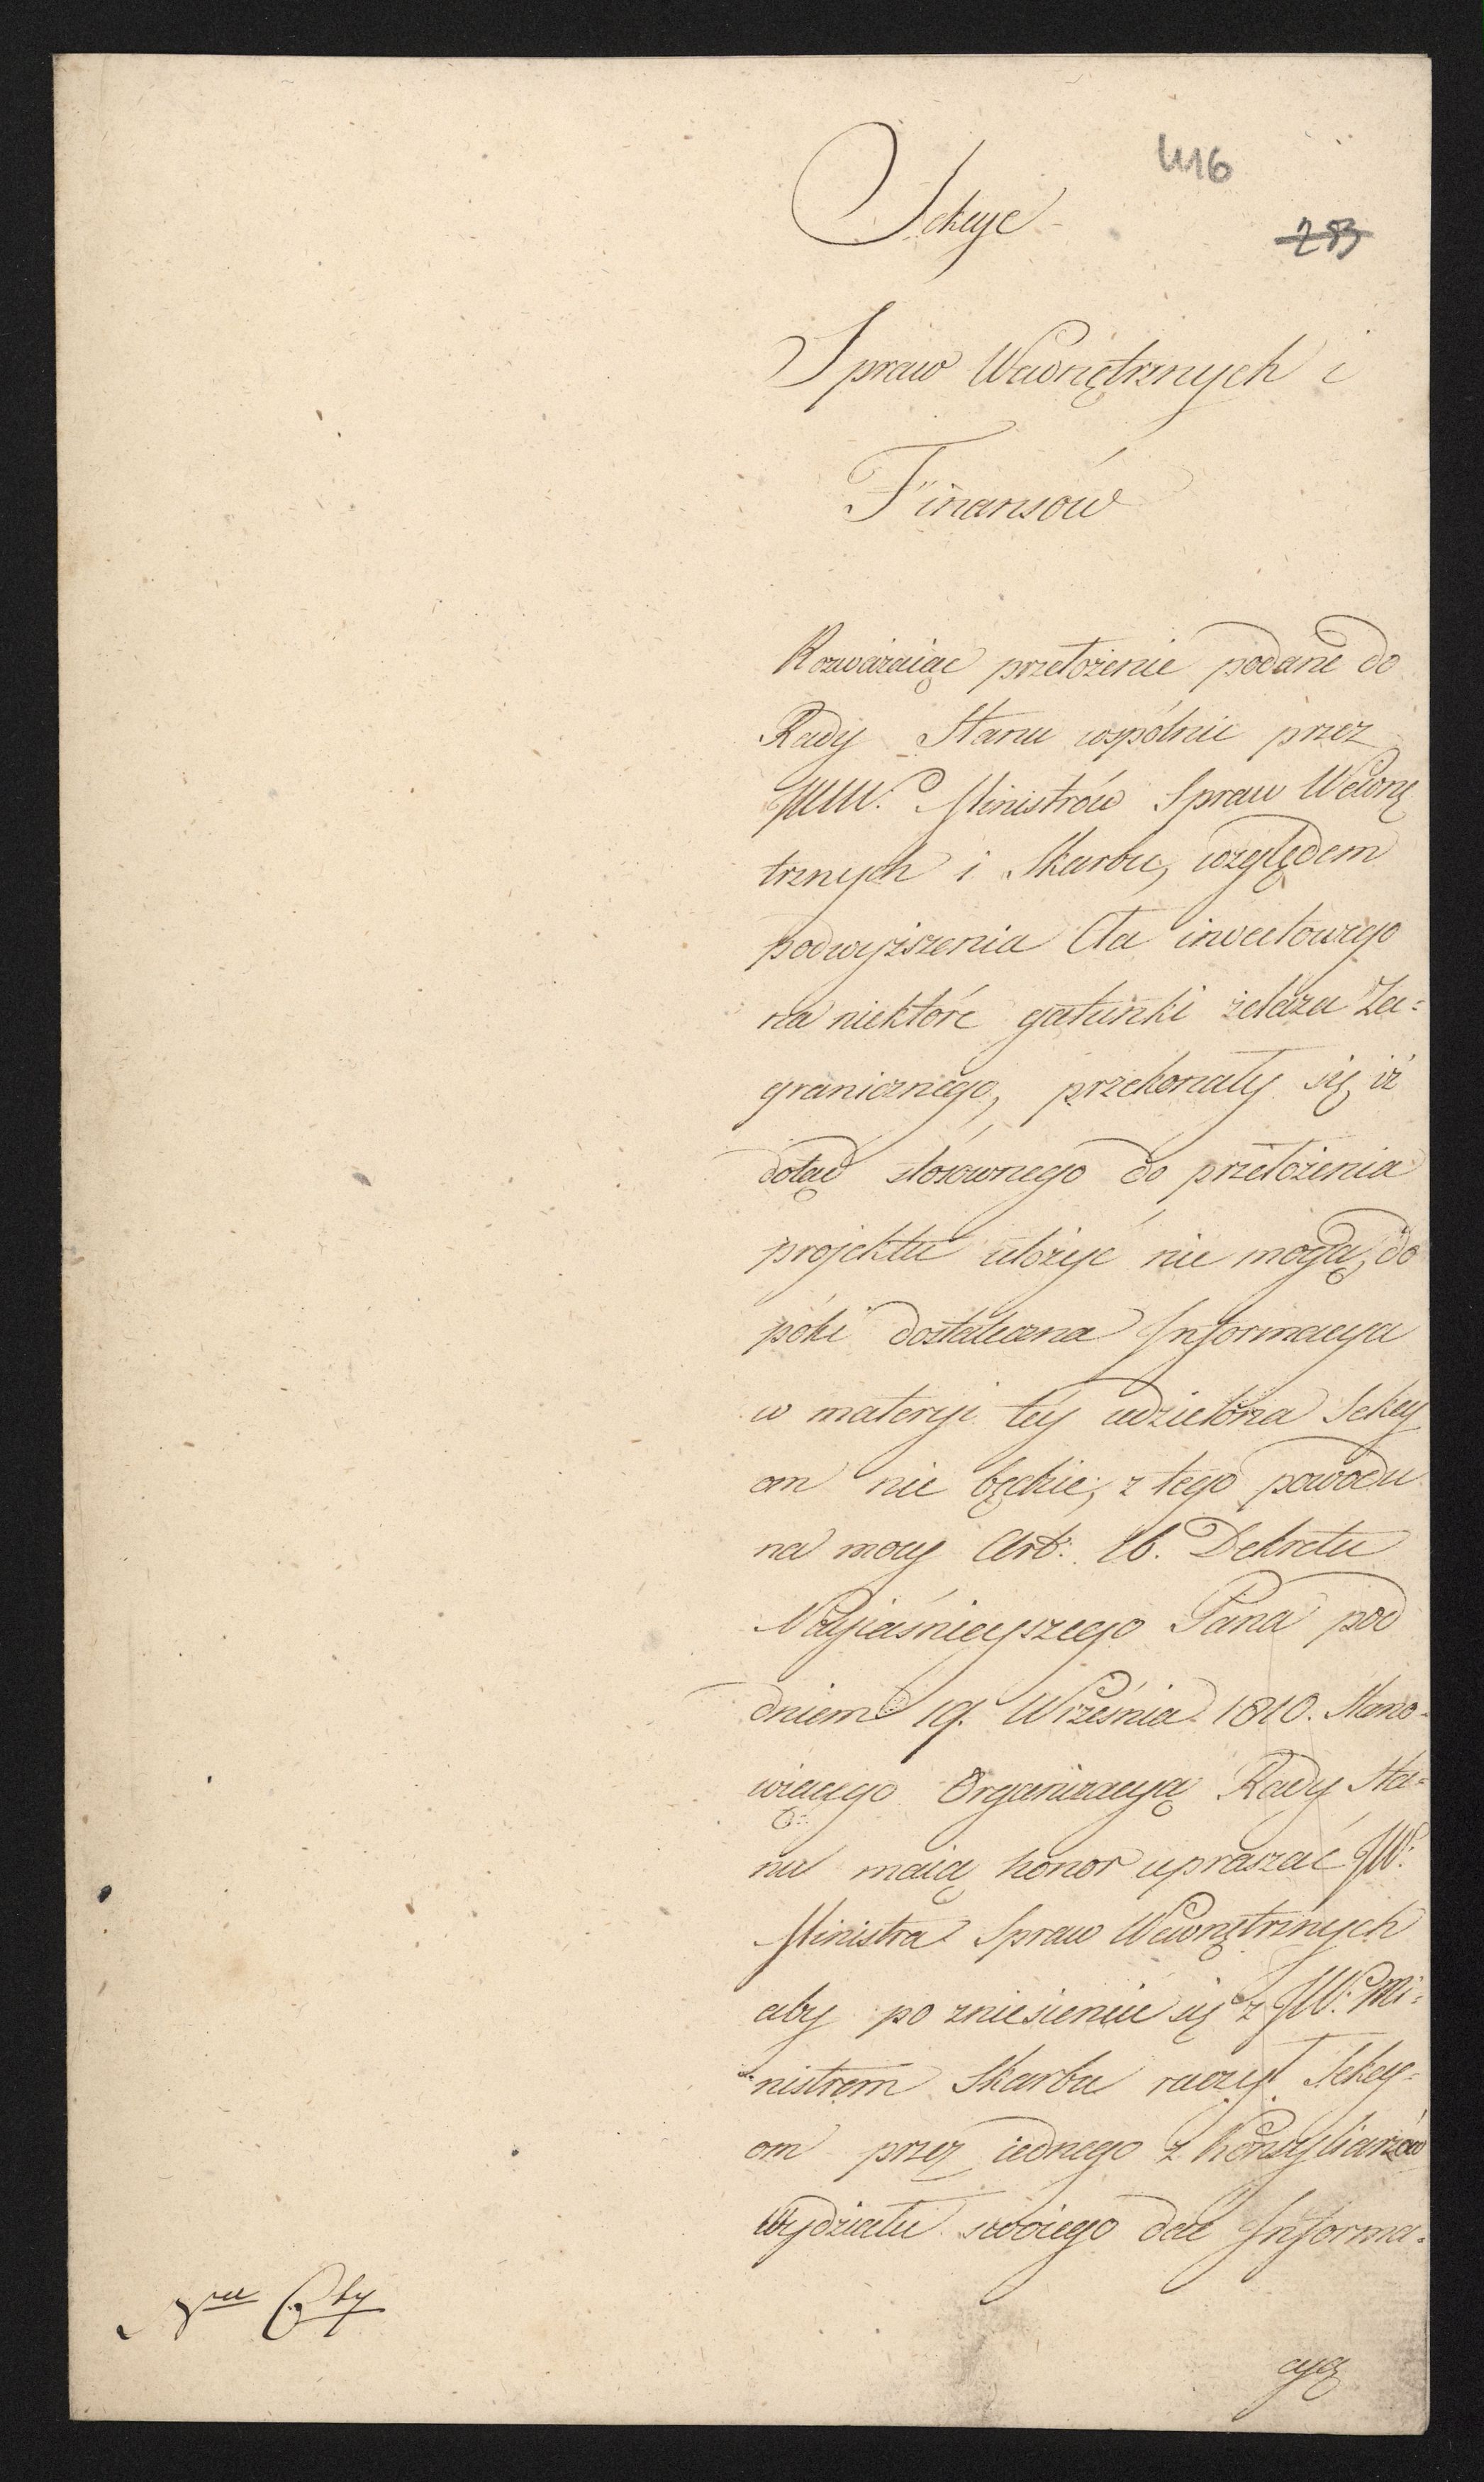 416
283
Sekcye
Spraw Wewnętrznych i
Finansów
Rozważaiąc przełożenie podane do
Rady Stanu wspólnie przez
JWW. Ministrów Spraw Wewnę
trznych i Skarbu, względem
podwyższenia Cła invectowego
na niektóre gatunki żelaza Za=
granicznego, przekonały się iż
dotąd stosownego do przełożenia
projektu ułożyć nie mogą, do
póki dostateczna Informacya
w materyi téy udzielona Sekcy
om nie będzie; z tego powodu
na mocy Art: 16. Dekretu
Nayiaśnieyszego Pana pod
dniem 19. Września 1810. Stano=
wiącego Organizacyą Rady Sta=
nu maią honor upraszać JW:
Ministra Spraw Wewnętrznych
aby po zniesieniu się z JW: Mi=
nistrem Skarbu raczył Sekcy=
om przez iednego z Konsyliarzów
Wydziału swoiego dać Informa=
cyą
Nru 6ty